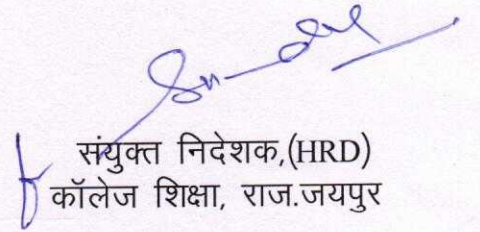 संयुक्त निदेशक,(HRD)
कॉलेज शिक्षा, राज.जयपुर